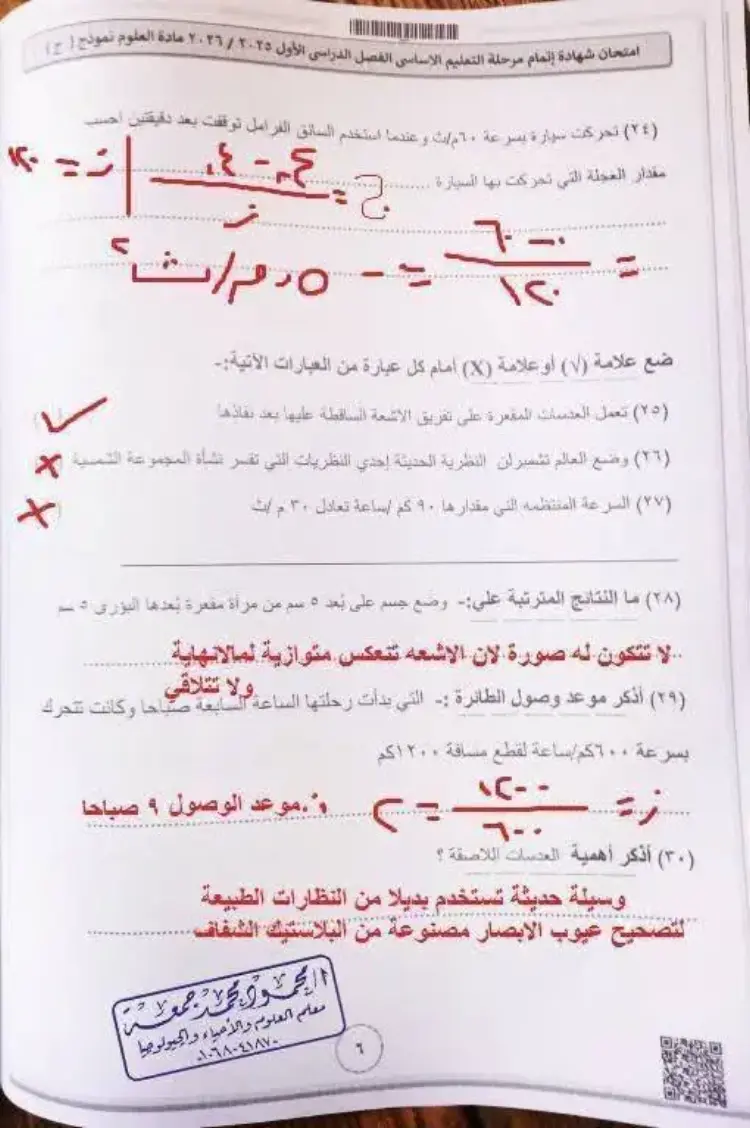 امتحان شهادة إتمام مرحلة التعليم الاساسى الفصل الدراسى الأول ٢٠٢٥ / ٢٠٢٦ مادة العلوم نموذج ( ج )
(٢٤) تحركت سيارة بسرعة ٦٠م/ث و عندما استخدم السائق الفرامل توقفت بعد دقيقتين احسب
مقدار العجلة التي تحركت بها السيارة
ج = ع٢ - ع١ / ز
ز = ١٢٠
= ٠ - ٦٠ / ١٢٠ = - ٠٫٥ م/ث٢
ضع علامة (√) أوعلامة (X) أمام كل عبارة من العبارات الآتية:-
(٢٥) تعمل العدسات المقعرة على تفريق الاشعة الساقطة عليها بعد نفاذها ( ✓ )
(٢٦) وضع العالم تشمبرلن النظرية الحديثة إحدي النظريات التي تفسر نشأة المجموعة الشمسية ( X )
(٢٧) السرعة المنتظمه التي مقدارها ٩٠ كم /ساعة تعادل ٣٠ م /ث ( X )
(٢٨) ما النتائج المترتبة علي:- وضع جسم على بُعد ٥ سم من مرآة مقعرة بُعدها البؤرى ٥ سم
لا تتكون له صورة لان الاشعه تنعكس متوازية لمالانهاية
ولا تتلاقي
(٢٩) أذكر موعد وصول الطائرة :- التي بدأت رحلتها الساعة السابعة صباحا وكانت تتحرك
بسرعة ٦٠٠كم/ساعة لقطع مسافة ١٢٠٠كم
ز = ١٢٠٠ / ٦٠٠ = ٢ ∴ موعد الوصول ٩ صباحا
(٣٠) أذكر أهمية العدسات اللاصقة ؟
وسيلة حديثة تستخدم بديلا من النظارات الطبيعة
لتصحيح عيوب الابصار مصنوعة من البلاستيك الشفاف
محمد جمعة
معلم العلوم والأحياء والجيولوجيا
٦